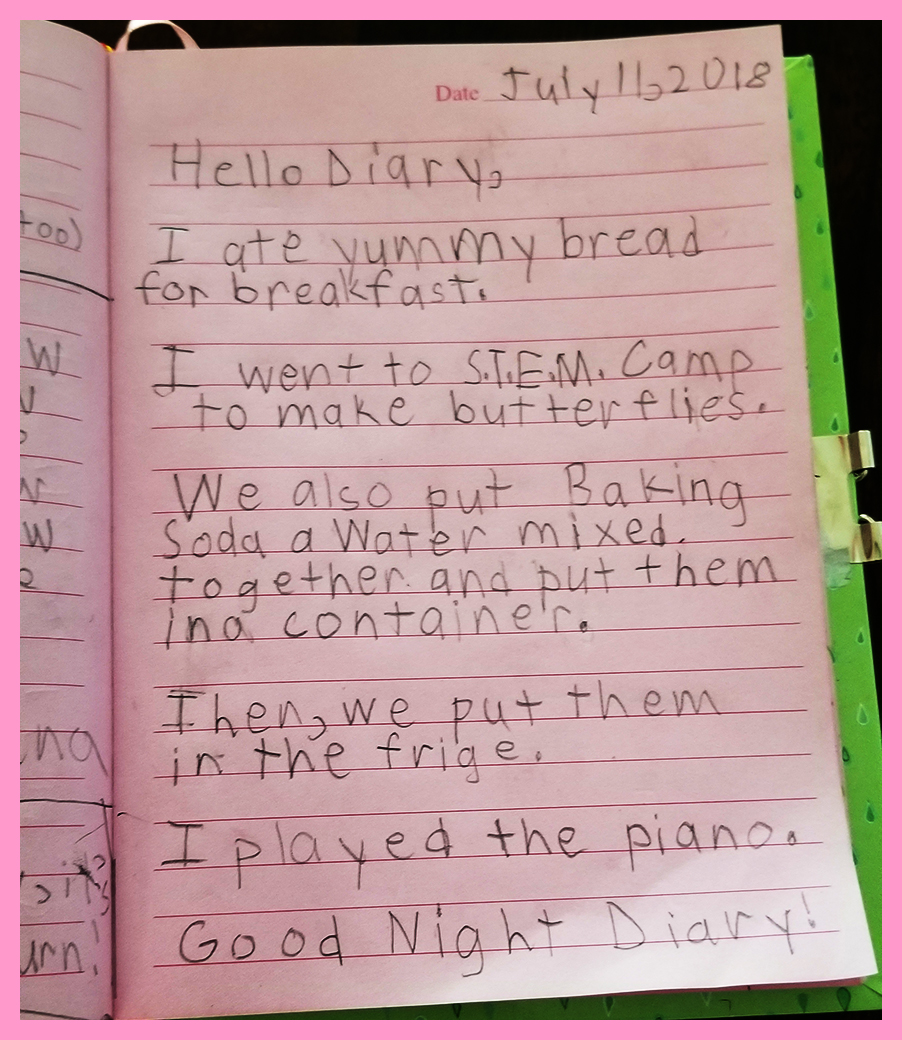 Date July 11, 2018
Hello Diary,
I ate yummy bread
for breakfast.
I went to S.T.E.M. Camp
to make butterflies.
We also put Baking
Soda a Water mixed.
together and put them
in a container.
Then, we put them
in the frige.
I played the piano.
Good Night Diary!
too)
W
W
urn!